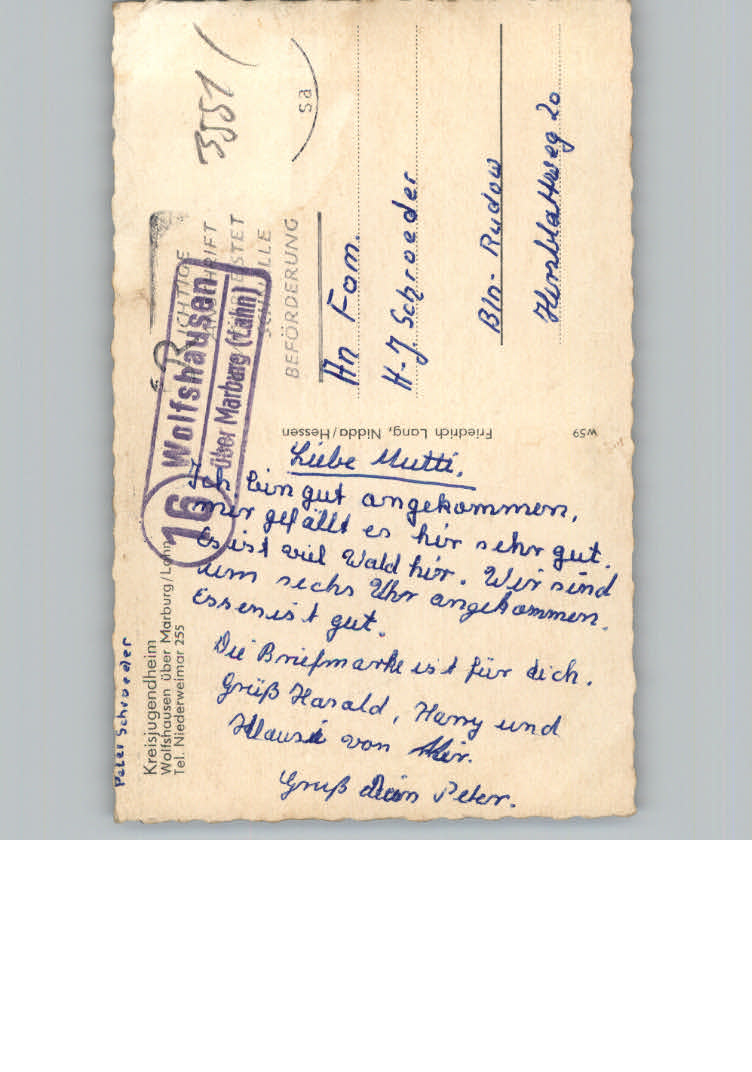 Peter Schroeder
Kreisjugendheim
Wolfshausen über Marburg/Lahn
Tel. Niederweimar 255
16 Wolfshausen
über Marburg (Lahn)
Liebe Mutti,
Ich bin gut angekommen,
mir gefällt es hir sehr gut.
Es ist viel Wald hir. Wir sind
um sechs Uhr angekommen.
Essen ist gut.
Die Briefmarke ist für dich.
Grüß Harald, Harry und
von Mir.
Gruß dein Peter.
Friedrich Lang, Nidda/Hessen
W59
3551/
sa
RICHTIGE
ANSCHRIFT
BEFÖRDERUNG
An Fam.
H-J Schroeder
Bln-Rudow
Herzblattweg 20